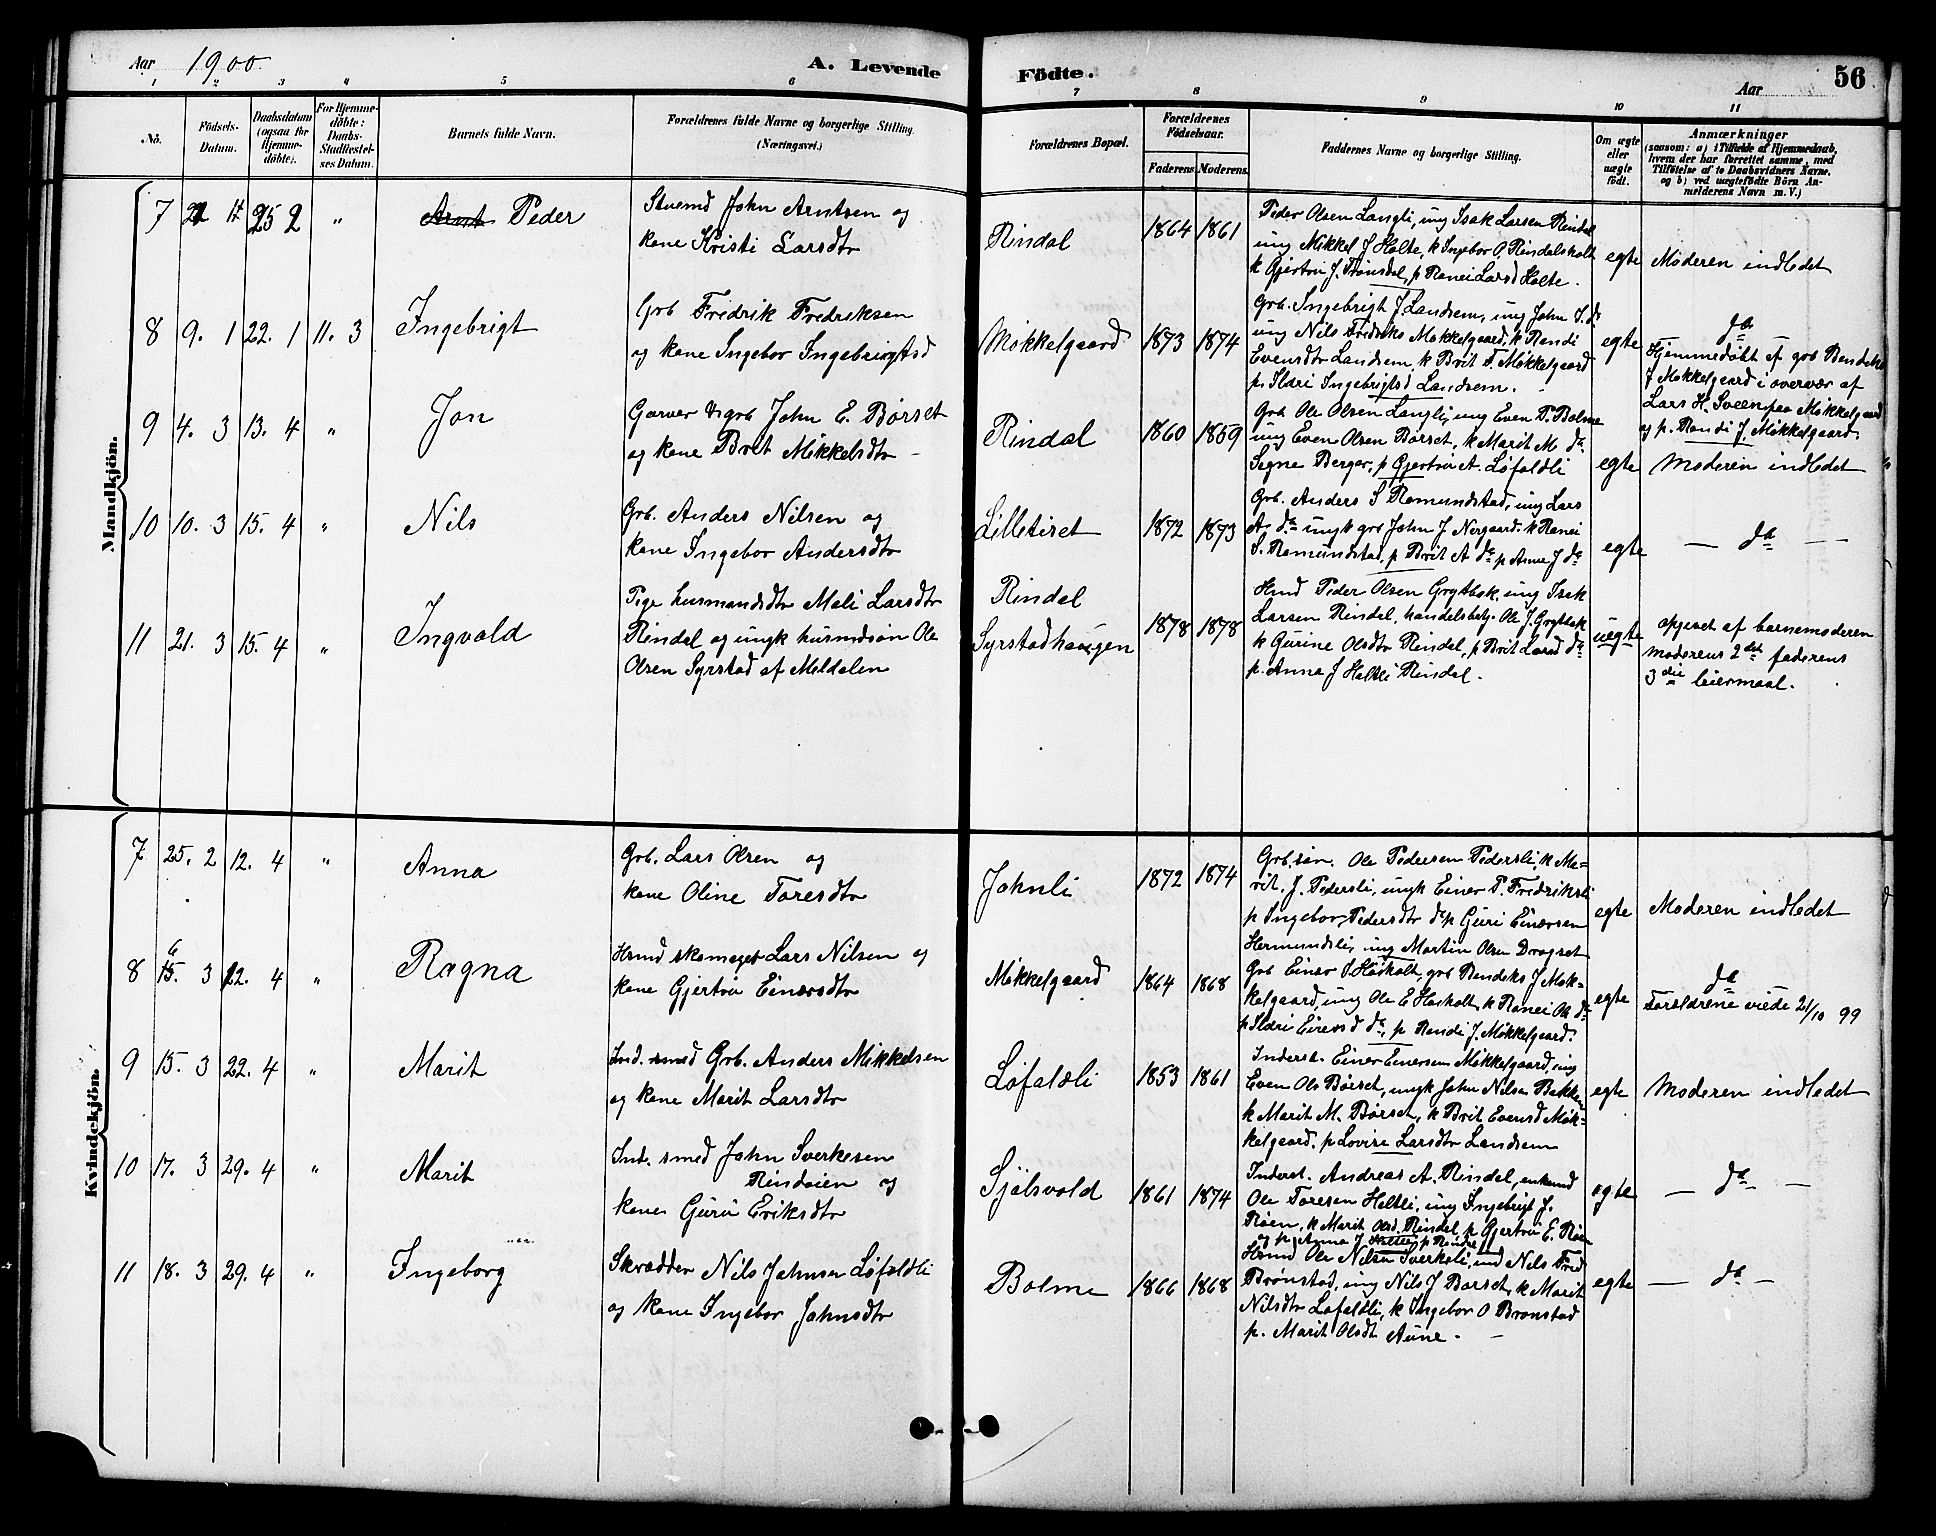 Aar 1900. A. Levende Födte. Aar 56
1 2 3 4 5 6 7 8 9 10 11
No.
Födsels-Datum.
Daabsdatum (ogsaa for Hjemmedöbte).
For Hjemmedöbte: Daabs-Stadfestelses Datum.
Barnets fulde Navn.
Forældrenes fulde Navne og borgerlige Stilling.
(Næringsvei.)
Forældrenes Bopæl.
Forældrenes Födselsaar.
Faderens. Moderens.
Faddernes Navne og borgerlige Stilling.
Om ægte eller uægte födt.
Anmærkninger
(saasom: a) i Tilfælde af Hjemmedaab,
hvem der har forrettet samme, med
Tilföielse af to Daabsvidners Navne,
og b) ved uægtefödte Börn An-
melderens Navn m. V.)
Mandkjön.
7 25 2 " Arnt Peder
Stuemd John Arntsen og
kone Kristi Larsdtr
Rindal 1864 1861
Peder Olsen Langli, ung Isak Larsen Rindal
ung Mikkel J Holte, k Ingebor O. Rindalsholt
k Gjertru J. Trönsdal, p Ranei Larsd Holte.
egte Moderen indledet
8 9. 1 22. 1 11. 3 Ingebrigt
Grb Fredrik Fredriksen
og kone Ingebor Ingebrigtsd
Mokkelgaard 1873 1874
Grb. Ingebrigt J Landsem, ung John I. do
ung Nils Fredriks Mökkelgaard, k Randi
Evensdtr Landsem, k Brit F. Mökkelgaard
p. Ildri Ingebrigtsd Landsem.
egte da
Hjemmedöbt af grb Bendiks
J Mökkelgaard i overvær af
Lars H. Sveen paa Mökkelgaard
og p. Randi J. Mökkelgaard.
9 4. 3 13. 4 " Jon
Garver & grb John E. Börset
og kone Brit Mikkelsdtr
Rindal 1860 1859
Grb Ole Olsen Langli, ung Even P. Bolme
ung Even Olsen Börset, k Marit M. da
Signe Berger, p Gjertru A. Löfaldli
egte Moderen indledet
10 10. 3 15. 4 " Nils
Grb. Anders Nilsen og
kone Ingebor Andersdtr
Lilletiset 1872 1873
Grb. Anders S Romundstad, ung Lars
A. da ungk grb John J Nergaard. k Ranei
S. Romundstad, p Brit A da p Anne J da
egte — da —
11 21. 3 15. 4 " Ingvald
Pige husmandsdtr Mali Larsdtr
Rindal og ungk husmdsön Ole
Olsen Syrstad af Meldalen
Rindal
Syrstadhaugen 1878 1878
Hmd Peder Olsen Grytbak, ung Isak
Larsen Rindal, handelsbetj. Ole J. Grytbak
k Gurine Olsdtr Rindal, p Brit Larsd da
p. Anna J Holtli Rindal.
uegte opgivet af barnemoderen
moderens 2det faderens
3die leiermaal.
Kvindekjön.
7 25. 2 12. 4 " Anna
Grb. Lars Olsen og
kone Oline Toresdtr
Johnli 1872 1874
Grb.sön. Ole Pedersen Pedersli, k Ma-
rit. J. Pedersli, ungk Einer P. Fredriksli
p Ingebor Pedersdtr da p Guri Einersen
Hermundsli, ung Martin Olsen Drogset
egte Moderen indledet
8 15. 3 22. 4 " Ragna
Hmd skomager Lars Nilsen og
kone Gjertru Einersdtr
Mökkelgaard 1864 1868
Grb Einer O Haskolt, grb Bendiks J Mök-
kelgaard, ung Ole E Haskolt, k Ranei Ols da
p Ildri Einersd da, p Randi J. Mökkelgaard.
egte da
Forældrene viede 21/10 99
9 15. 3 22. 4 " Marit
Ind. smed Grb. Anders Mikkelsen
og kone Marit Larsdtr
Löfaldli 1853 1861
Inderst. Einer Einersen Mökkelgaard, ung
Even Ols Börset, ungk John Nilsen Bakken
k Marit M. Börset, k Brit Evensd Mök-
kelgaard. p Lovise Larsdtr Landsem
egte Moderen indledet
10 17. 3 29. 4 " Marit
Ind. smed John Sverkesen
Rindöien og
kone Guru Eriksdtr
Sjölsvold 1861 1874
Inderst. Andreas A. Rindal, enkemd
Ole Toresen Holtli, ung Ingebrigt J.
Röen, k Marit Olsd. Rindal, p Gjertru E. Röen
og p. Anna J Holtli p Rindal
egte — da —
11 18. 3 29. 4 " Ingeborg
Skrædder Nils Johnsen Löfaldli
og kone Ingebor Johnsdtr
Bolme 1866 1868
Hmd Ole Nilsen Sverkeli, Nils Fred
Brönstad, ung Nils J Börset, k Marit
Nilsdtr Löfaldli, k Ingebor O Brönstad
p. Marit Olsdt Aune.
egte — da —